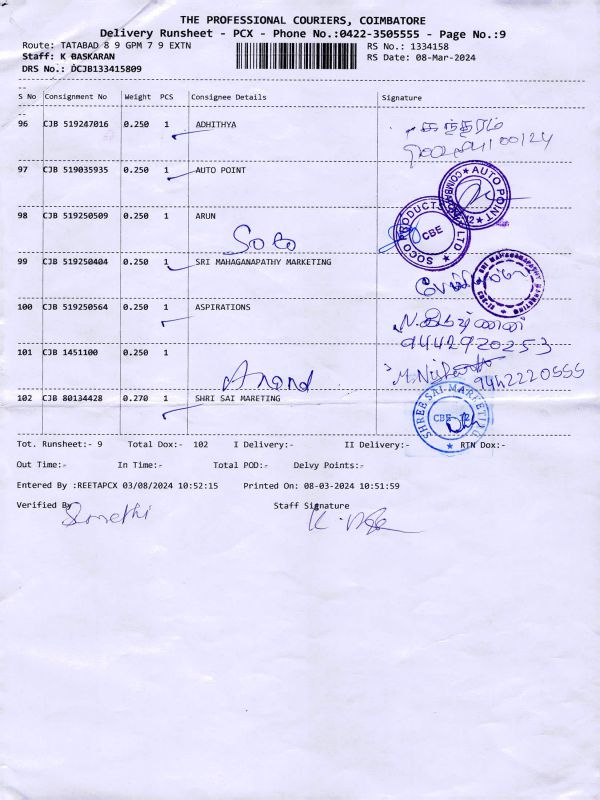 THE PROFESSIONAL COURIERS, COIMBATORE
Delivery Runsheet - PCX - Phone No.:0422-3505555 - Page No.:9
Route: TATABAD 8 9 GPM 7 9 EXTN
RS No.: 1334158
Staff: K BASKARAN
RS Date: 08-Mar-2024
DRS No.: DCJB133415809
S No Consignment No Weight PCS Consignee Details Signature
96 CJB 519247016 0.250 1 ADHITHYA
97 CJB 519035935 0.250 1 AUTO POINT
AUTO POINT
98 CJB 519250509 0.250 1 ARUN
Soco
SOCO PRODUCT LTD
CBE
99 CJB 519250404 0.250 1 SRI MAHAGANAPATHY MARKETING
SRI MAHAGANAPATHY MARKETING
100 CJB 519250564 0.250 1 ASPIRATIONS
9442920253
101 CJB 1451100 0.250 1
Anand
9442220555
102 CJB 80134428 0.270 1 SHRI SAI MARETING
SHREE SAI MARKETING
CBE - 12
Tot. Runsheet:- 9 Total Dox:- 102 I Delivery:- II Delivery:- RTN Dox:-
Out Time:- In Time:- Total POD:- Delvy Points:-
Entered By :REETAPCX 03/08/2024 10:52:15 Printed On: 08-03-2024 10:51:59
Verified By Staff Signature